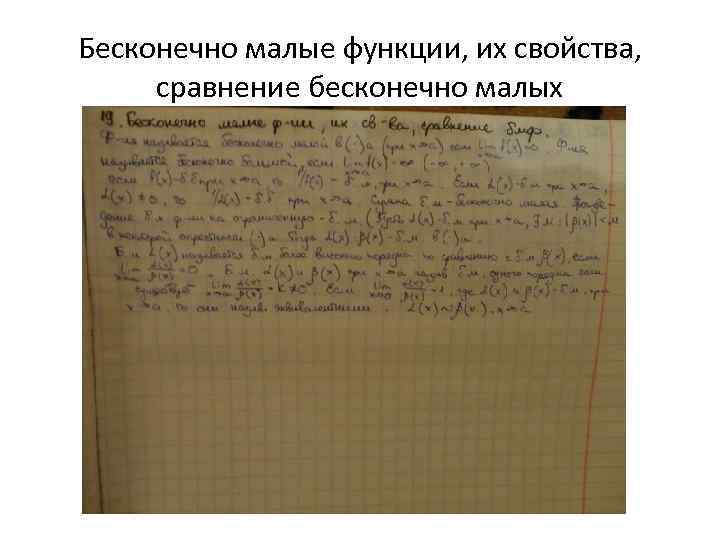 Бесконечно малые функции, их свойства,
сравнение бесконечно малых
19. Бесконечно малые ф-ии, их св-ва, сравнение бмф.
Ф-ия называется бесконечно малой в (·) a (при x→a) если lim f(x)=0. Ф-ия
x→a
называется бесконечно большой, если lim f(x)=∞ (-∞, +∞)
x→a
если f(x)-бб при x→a, то 1/f(x) - б.м, при x→a. Если α(x)-бм при x→a,
α(x)≠0, то 1/α(x)-бб при x→a. б.м-бесконечно малая.
дение б.м ф-ии на ограниченную-б.м. α(x)-бм при x→a, ∃M: |β(x)|<M
в некоторой окрестности (·)a. Тогда α(x)·β(x)-б.м. в (·)a.
Б.м α(x) называется бм более высокого порядка по сравнению с бм β(x), если
lim α(x)/β(x)=0. Б.м. α(x) и β(x) при x→a б.м. одного порядка если
x→a
существует lim α(x)/β(x)=K≠0. Если lim α(x)/β(x)=1, где α(x) и β(x)-б.м, при
x→a
x→a, то они назыв. эквивалентными. α(x)~β(x), x→a